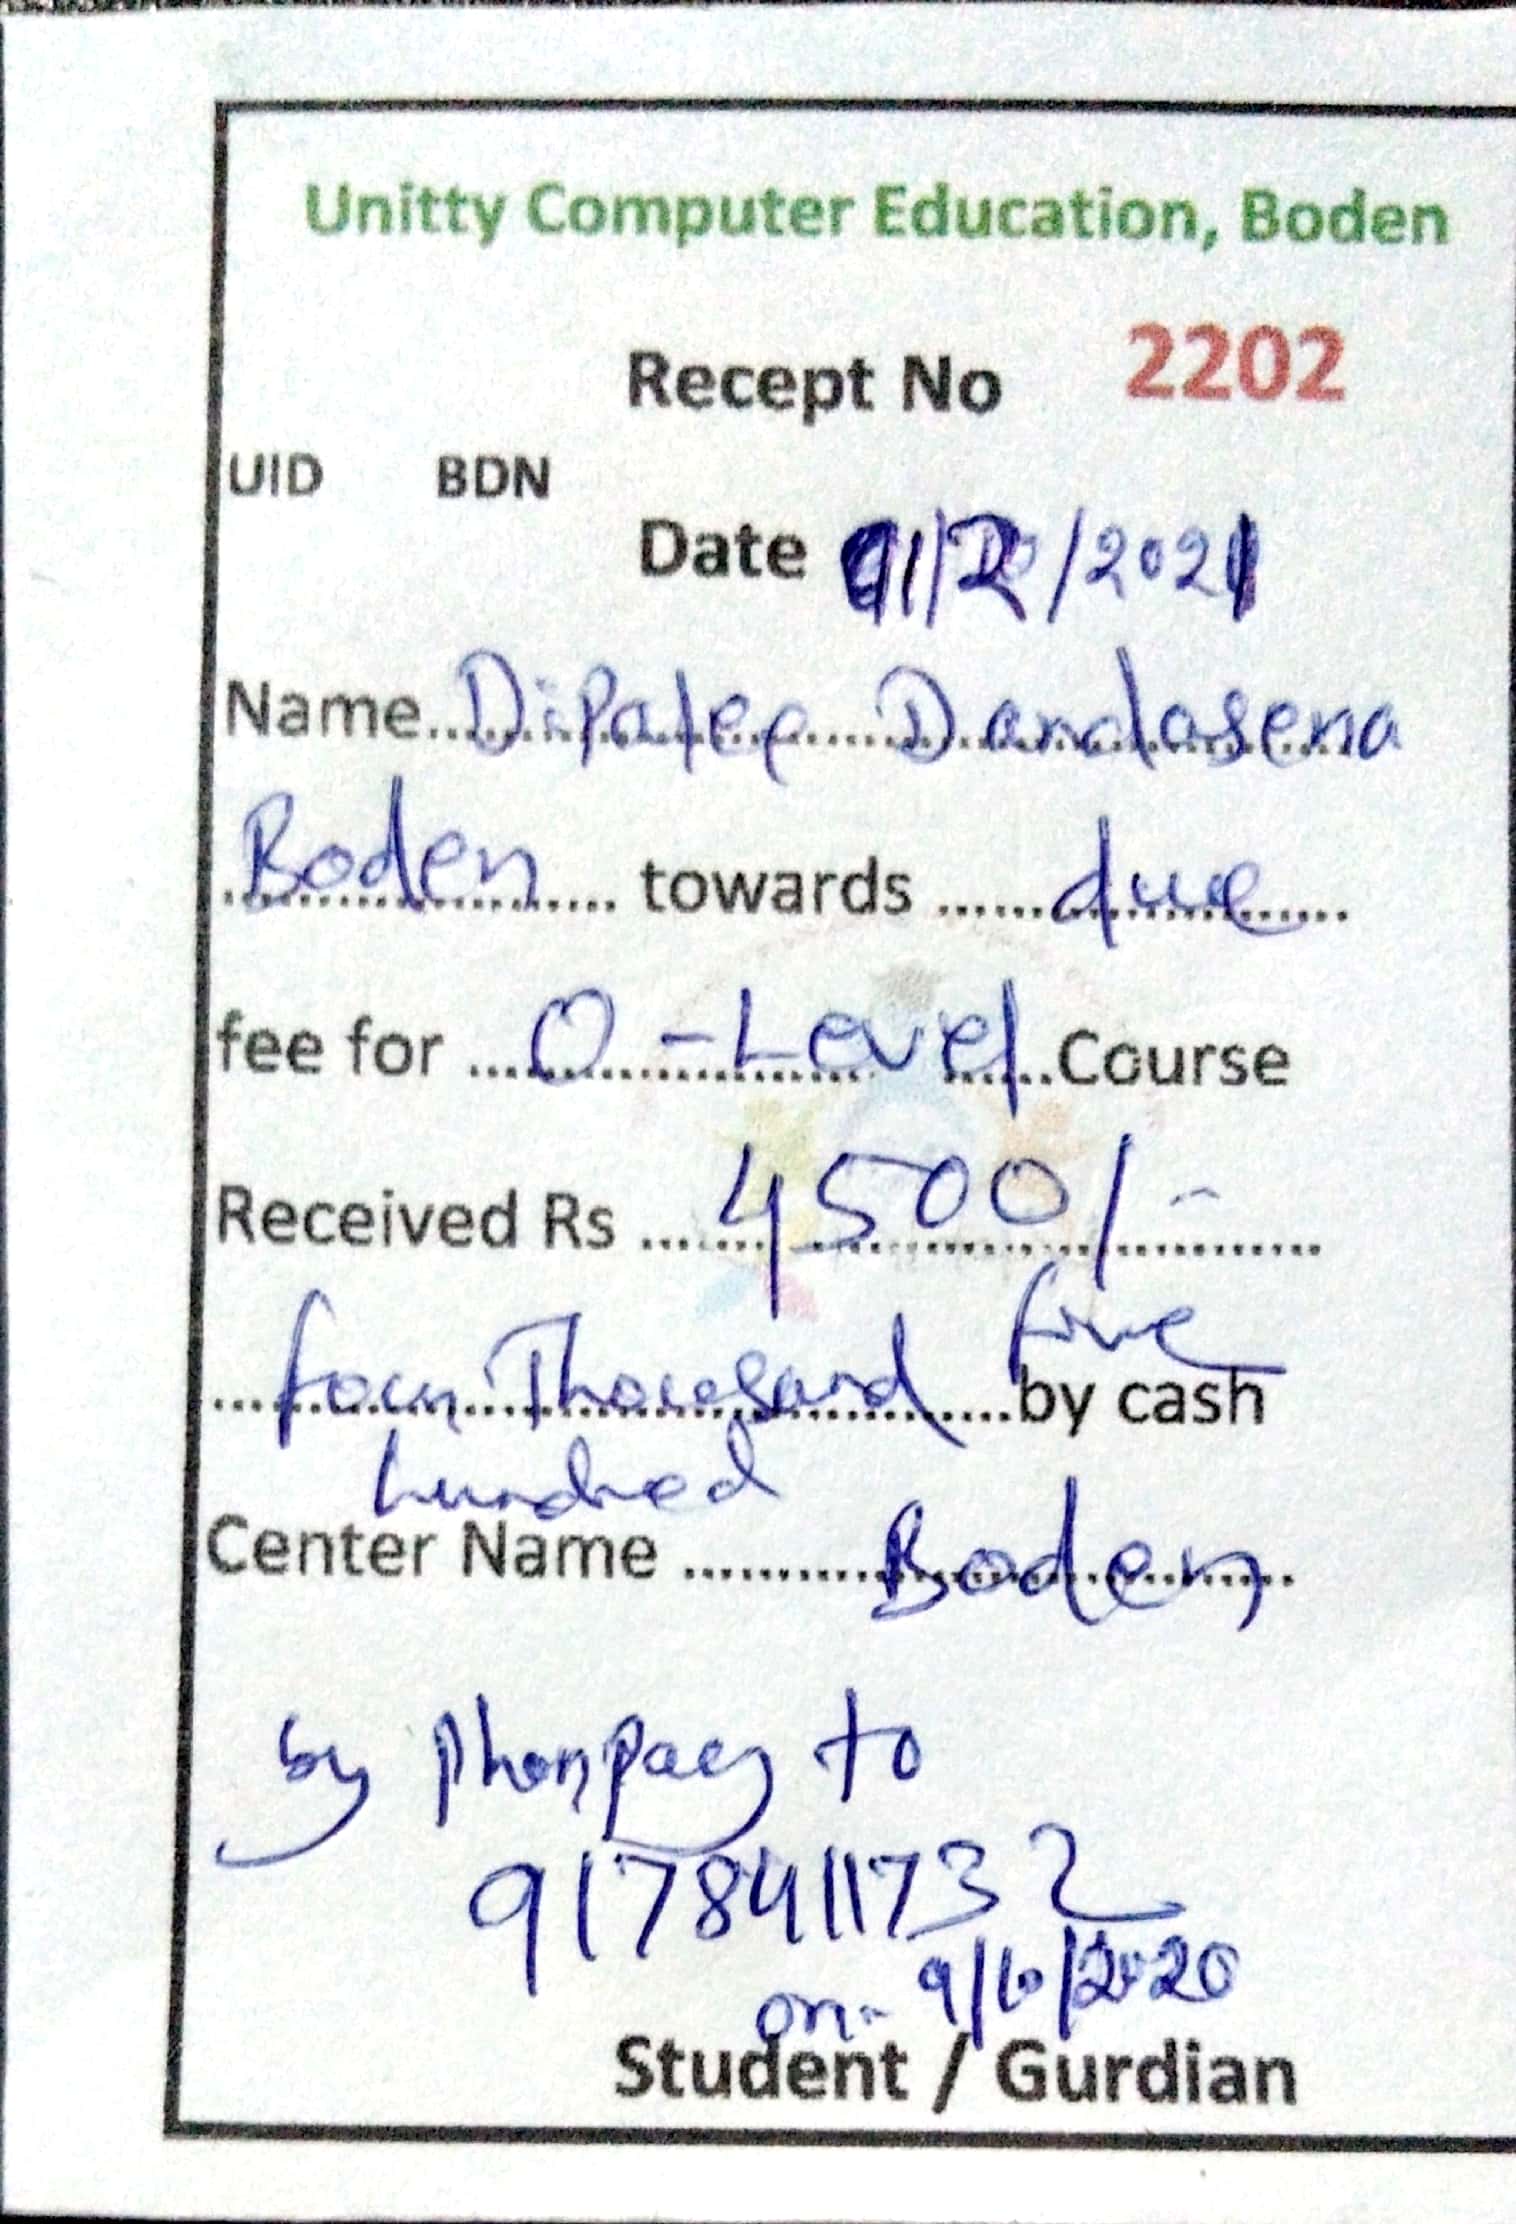 Unitty Computer Education, Boden
Recept No 2202
UID BDN
Date /2021
Name Dipalee Dandasena
Boden towards due
fee for O-Level Course
Received Rs 4500/-
four Thousand five by cash
hundred
Center Name Boden
by Phonpay to
9178411732
on- 9/6/2020
Student / Gurdian